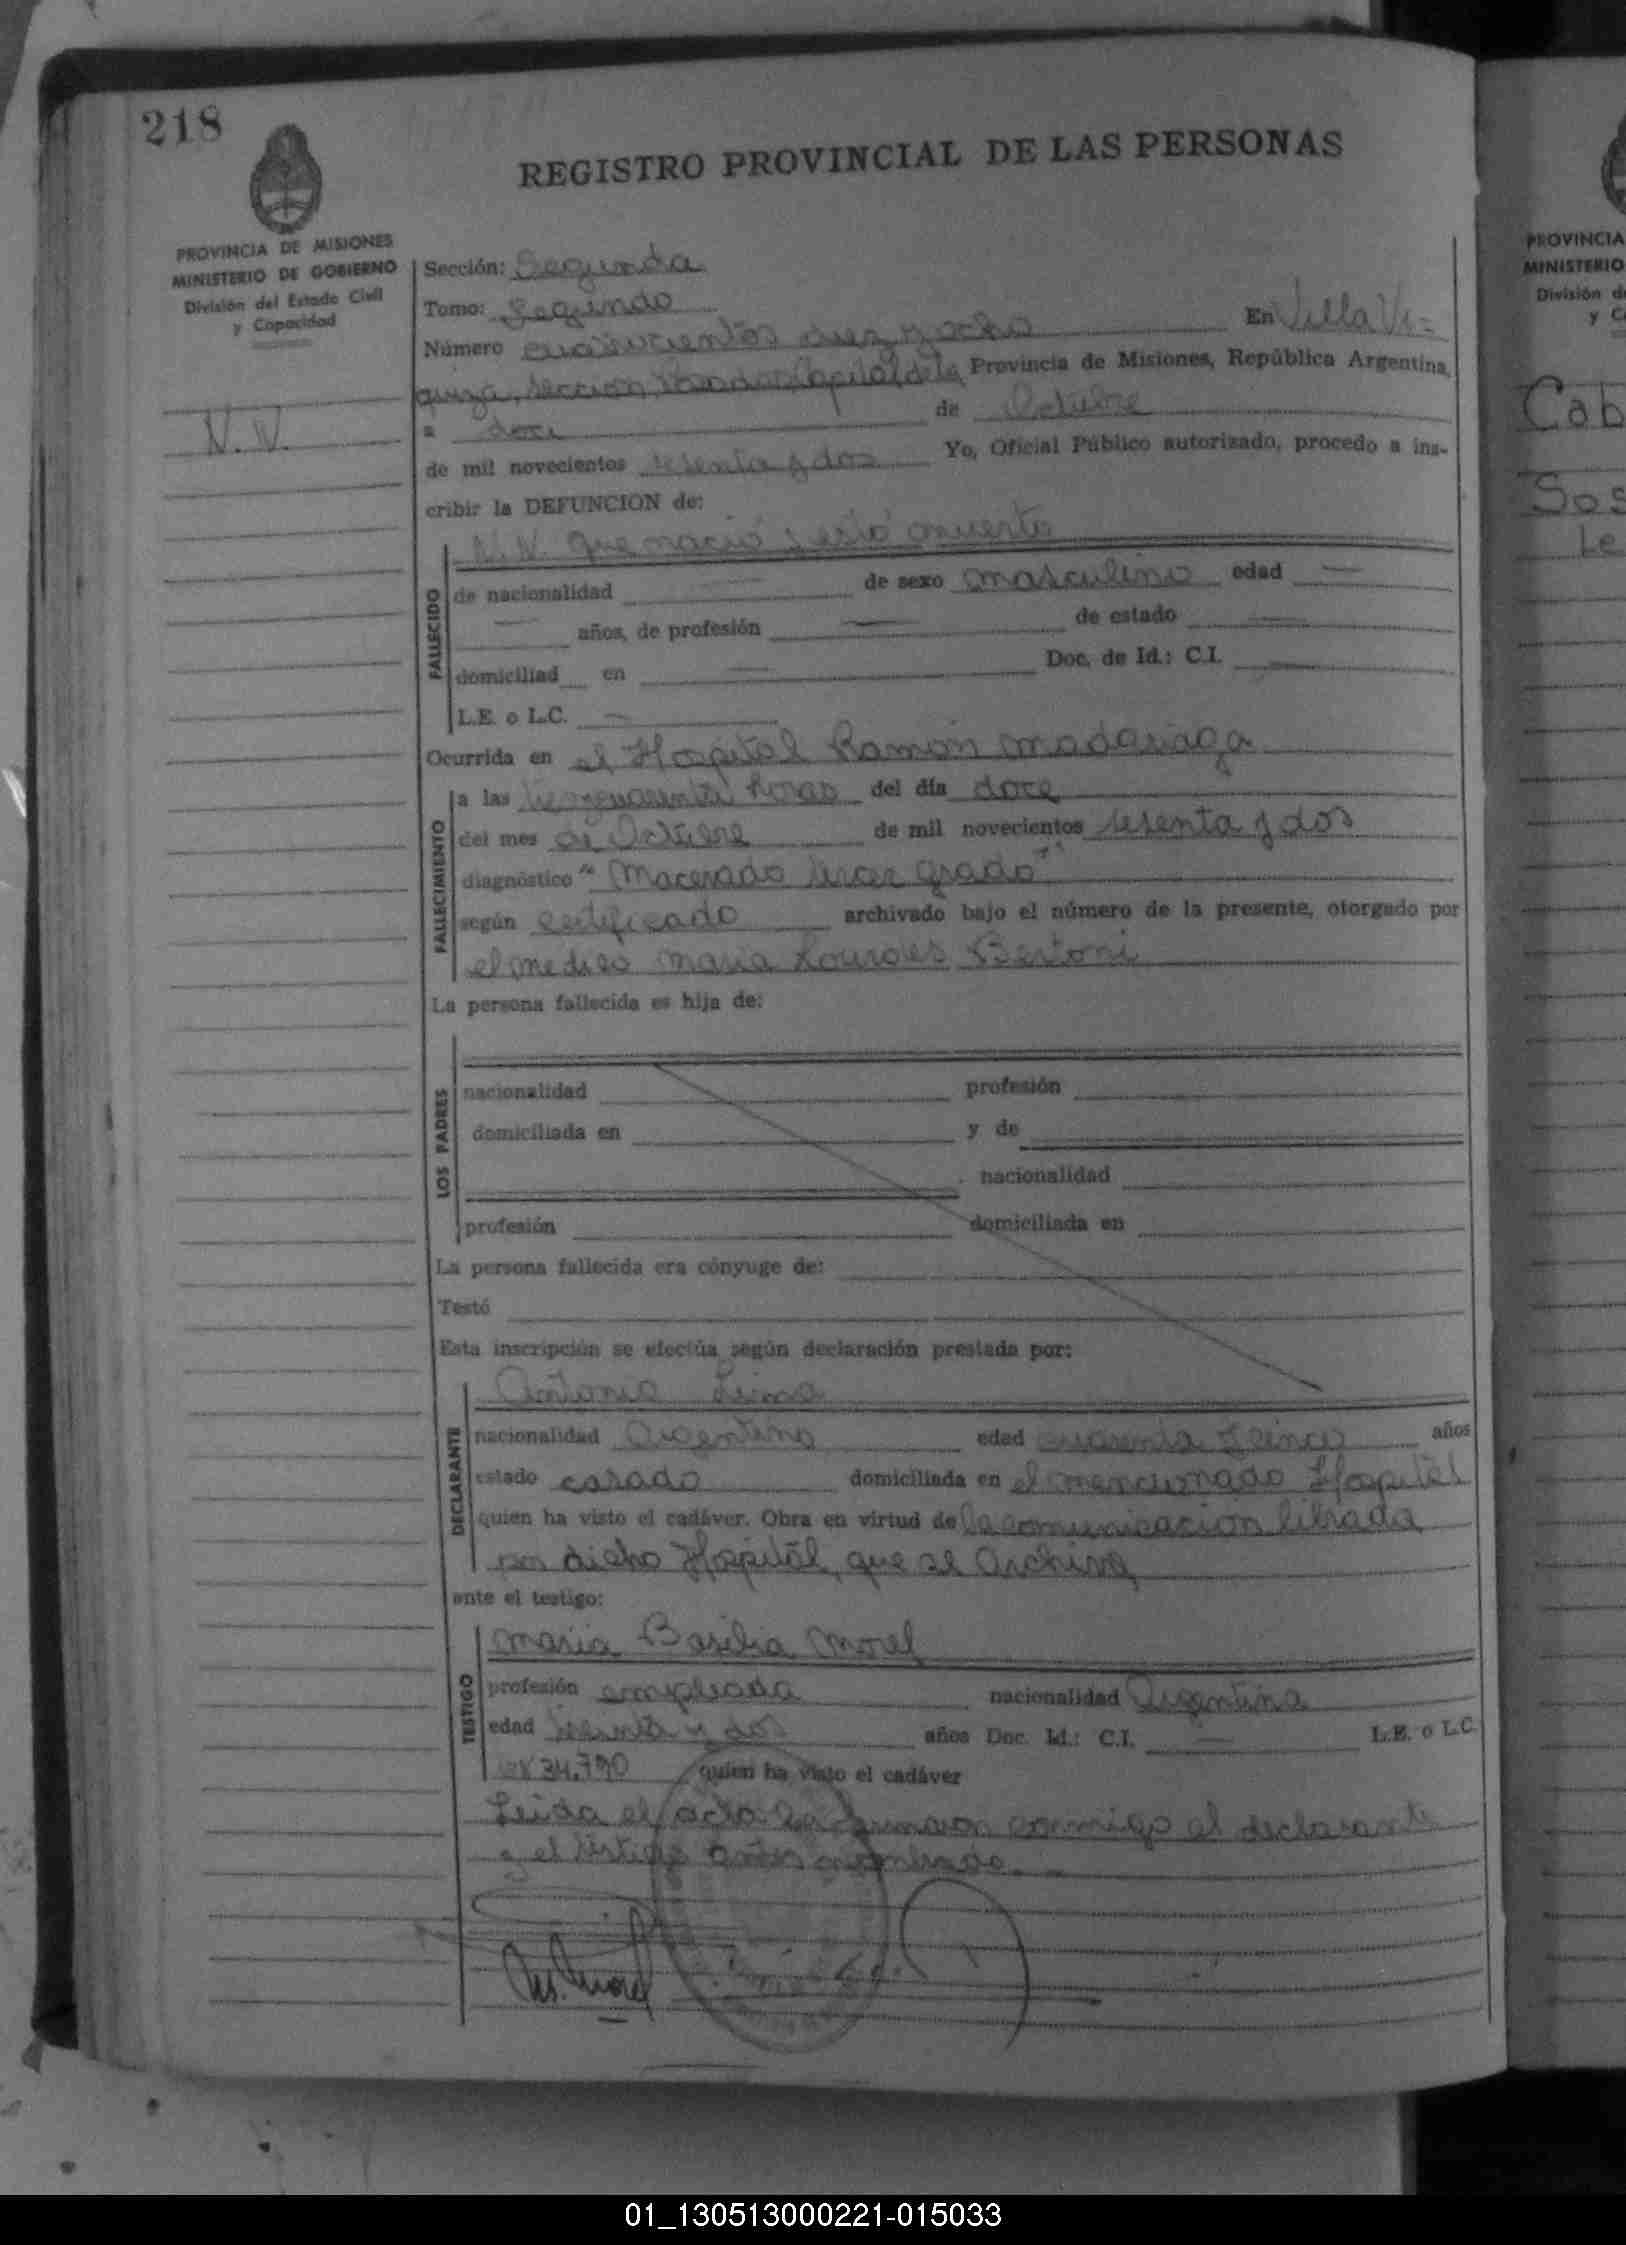 218
REGISTRO PROVINCIAL DE LAS PERSONAS
PROVINCIA DE MISIONES
MINISTERIO DE GOBIERNO
División del Estado Civil
y Capacidad
N. N.
Sección: Segunda
Tomo: Segundo
Número cuatrocientos diez y ocho En Villa Vi=
quiza, Sección Posadas, Capital de la Provincia de Misiones, República Argentina,
a doce de Octubre
de mil novecientos sesenta y dos Yo, Oficial Público autorizado, procedo a ins-
cribir la DEFUNCION de:
N. N. que nació muerto
FALLECIDO
de nacionalidad — de sexo masculino edad —
— años, de profesión — de estado —
domiciliad en — Doc. de Id.: C.I. —
L.E. o L.C. —
Ocurrida en el Hospital Ramón Madariaga
FALLECIMIENTO
a las horas del día doce
del mes de Octubre de mil novecientos sesenta y dos
diagnóstico "Macerado tercer grado"
según certificado archivado bajo el número de la presente, otorgado por
el medico Maria Lourdes Bertoni
La persona fallecida es hija de:
LOS PADRES
nacionalidad profesión
domiciliada en y de
nacionalidad
profesión domiciliada en
La persona fallecida era cónyuge de:
Testó
Esta inscripción se efectúa según declaración prestada por:
DECLARANTE
Antonio Lima
nacionalidad Argentino edad cuarenta y cinco años
estado casado domiciliada en el mencionado Hospital
quien ha visto el cadáver. Obra en virtud de la comunicación librada
por dicho Hospital, que se archiva,
ante el testigo:
TESTIGO
Maria Basilia Morel
profesión empleada nacionalidad Argentina
edad treinta y dos años Doc. Id.: C.I. — L.E. o L.C.
34.790 quien ha visto el cadáver
Leida el acta la firmaron conmigo el declarante
y el testigo antes nombrado.
PROVINCIA
MINISTERIO
División d
y C
Cab
Sos
Le
01_130513000221-015033